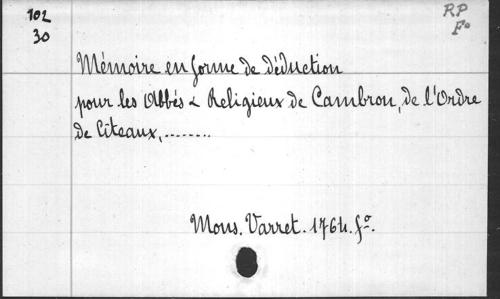 102
30
RP
Fo
Mémoire en forme de déduction
pour les Abbés & Religieux de Cambron, de l'Ordre
de Citeaux,........
Mons. Varret. 1764. fo.